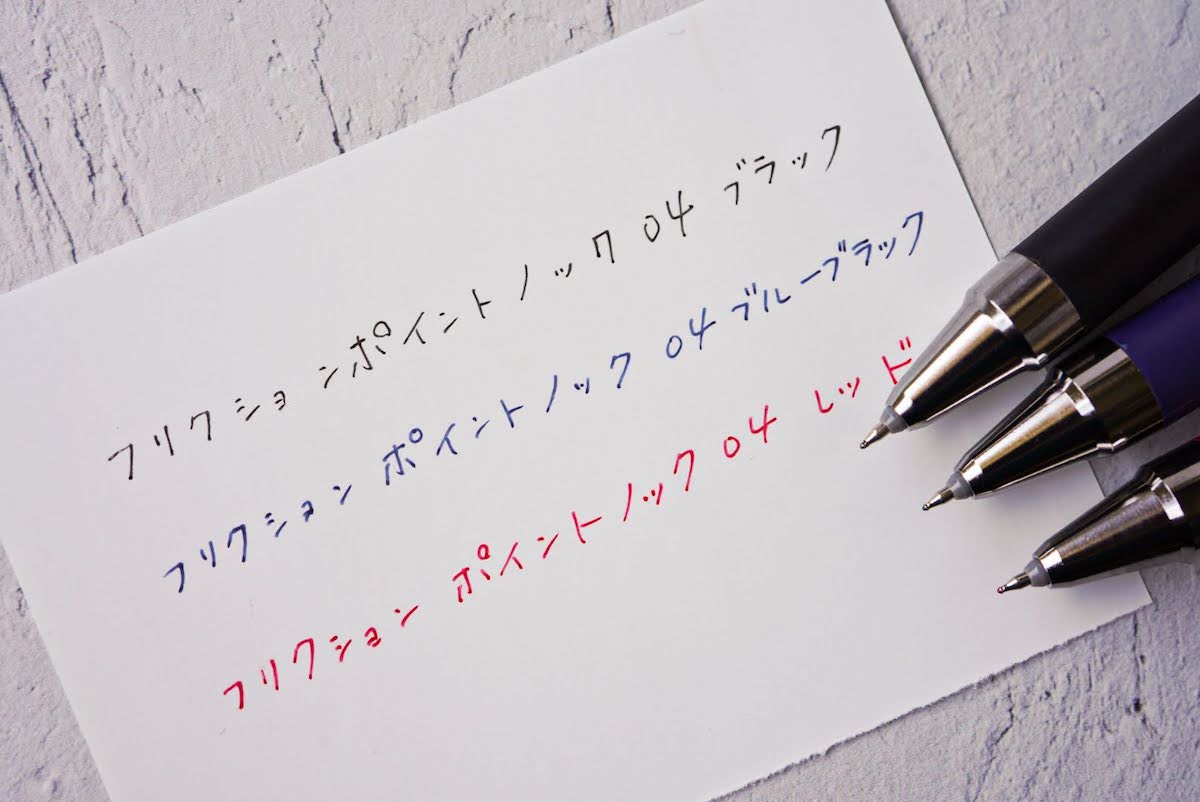 フリクションポイントノック 04 ブラック
フリクション ポイントノック 04 ブルーブラック
フリクション ポイントノック 04 レッド